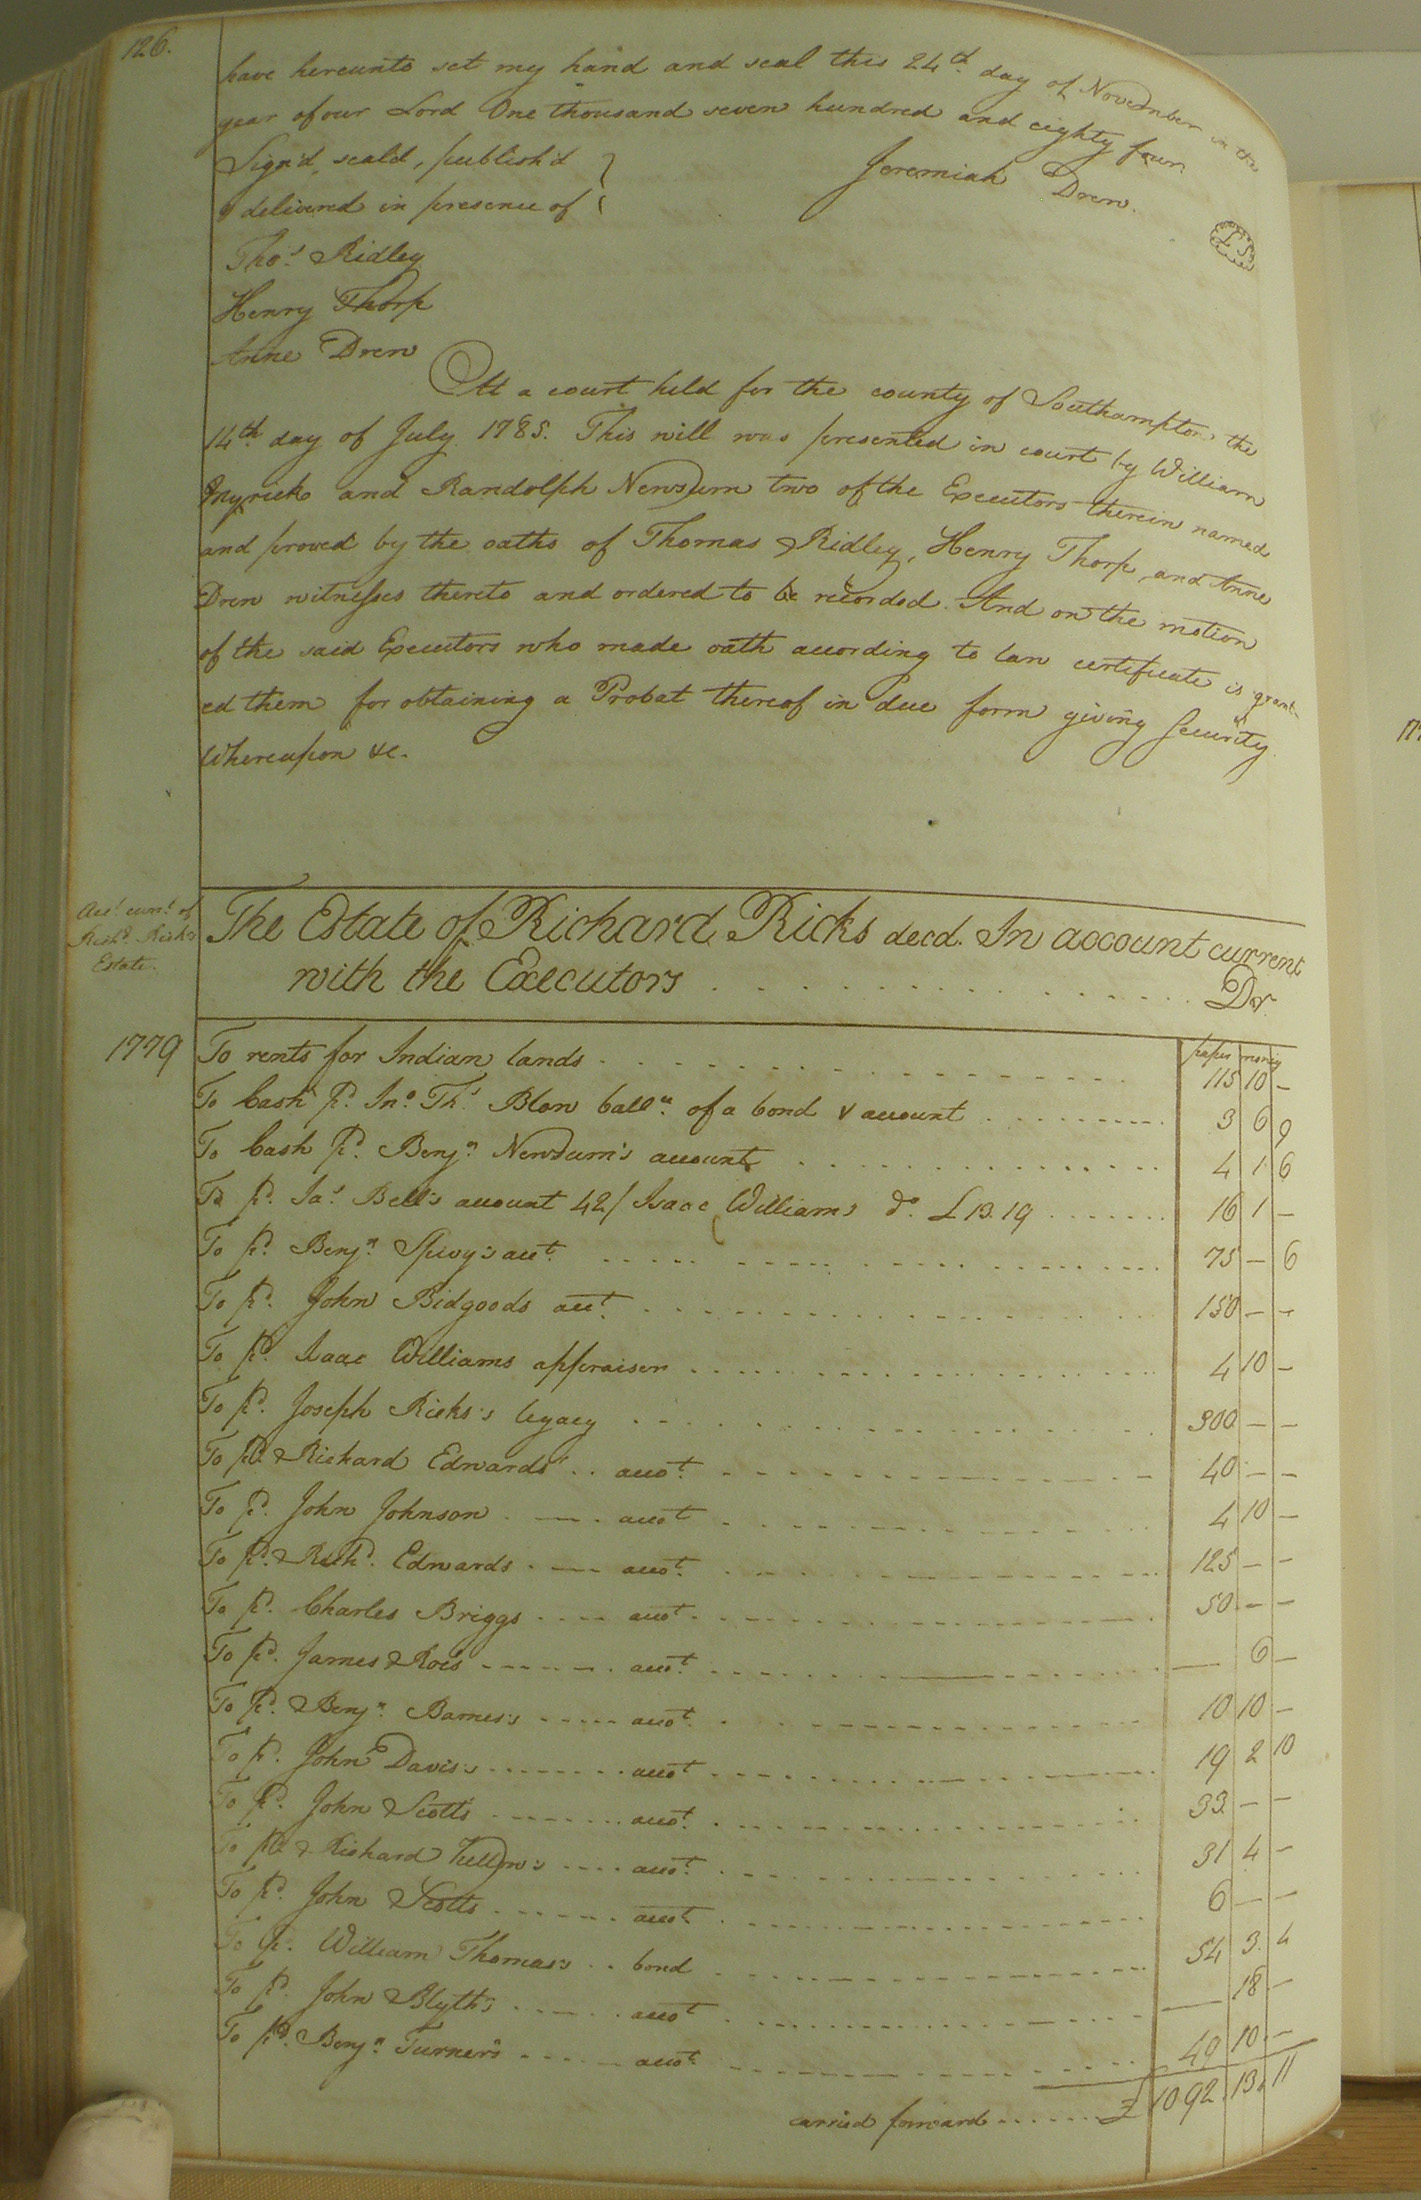 126.
have hereunto set my hand and seal this 24th day of November in the
year of our Lord One thousand seven hundred and eighty four.
Sign'd, seal'd, publish'd }
& delivered in presence of }
Jeremiah Drew.
LS.
Thos. Ridley
Henry Thorp
Anne Drew
At a court held for the county of Southampton the
14th day of July 1785. This will was presented in court by William
Myrick and Randolph Newsum two of the Executors therein named
and proved by the oaths of Thomas Ridley, Henry Thorp, and Anne
Drew witnesses thereto and ordered to be recorded. And on the motion
of the said Executors who made oath according to law certificate is grant-
ed them for obtaining a Probat thereof in due form giving Security.
Whereupon &c.
Acct. currt. of
Richd. Ricks
Estate
The Estate of Richard Ricks decd. In account current
with the Executors . . . . . Dr.
paper money
1779 To rents for Indian lands . . . . 115 10 –
To Cash pd. Jno. Ths. Blow ballce. of a bond & account . . . . 3 6 9
To Cash pd. Benjn. Newsum's account . . . . 4 1 6
To pd. Jas. Bell's account 42/ Isaac Williams do. £13.19 . . . . 16 1 –
To pd. Benjn. Spivy's acct. . . . . 75 – 6
To pd. John Bidgoods acct. . . . . 150 – –
To pd. Isaac Williams appraiser . . . . 4 10 –
To pd. Joseph Ricks's legacy . . . . 300 – –
To pd. Richard Edwards' . . accot. . . . . 40 – –
To pd. John Johnson . . . accot . . . . 4 10 –
To pd. Richd. Edwards . . . accot. . . . . 125 – –
To pd. Charles Briggs . . . accot. . . . . 50 – –
To pd. James Roes . . . accot. . . . . — 6 –
To pd. Benjn. Barnes's . . . accot. . . . . 10 10 –
To pd. John Davis's . . . accot . . . . 19 2 10
To pd. John Scotts . . . accot. . . . . 33 – –
To pd. Richard . . . accot. . . . . 31 4 –
To pd. John Scotts . . . accot. . . . . 6 – –
To pd. William Thomas's . . bond . . . . 54 3 4
To pd. John Blyth's . . . accot . . . . — 18 –
To pd. Benjn. Turner's . . . accot. . . . . 49 10 –
carried forward . . . . £ 1092. 13. 11